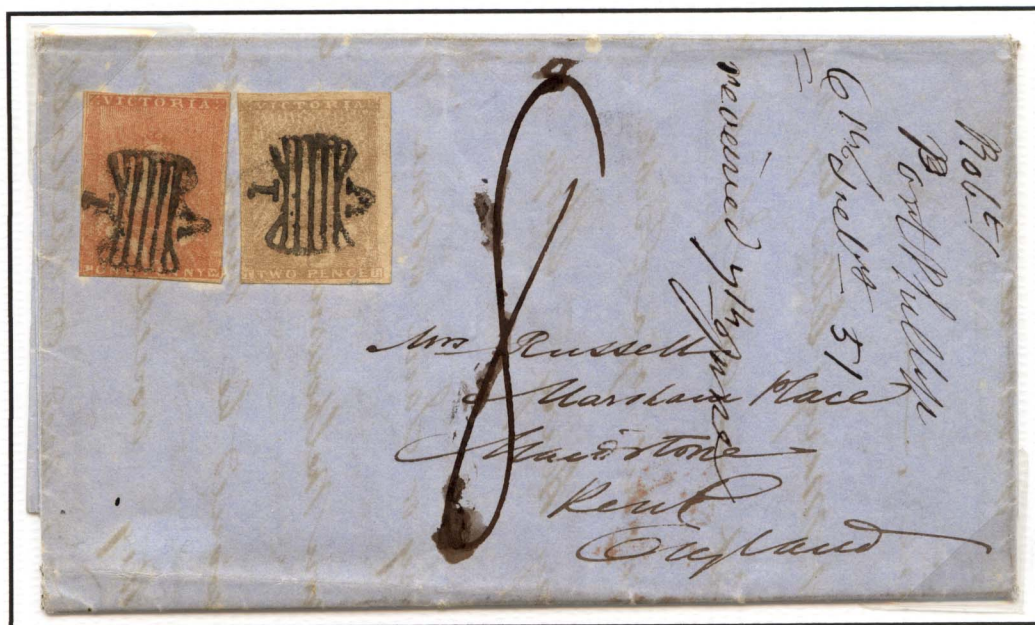 VICTORIA
VICTORIA
TWO PENCE
1 V
1 V
8
Mrs Russell
Marsham Place
Maidstone
Kent
England
Robt
Port Phillip
6th Feb 51
received 7th June